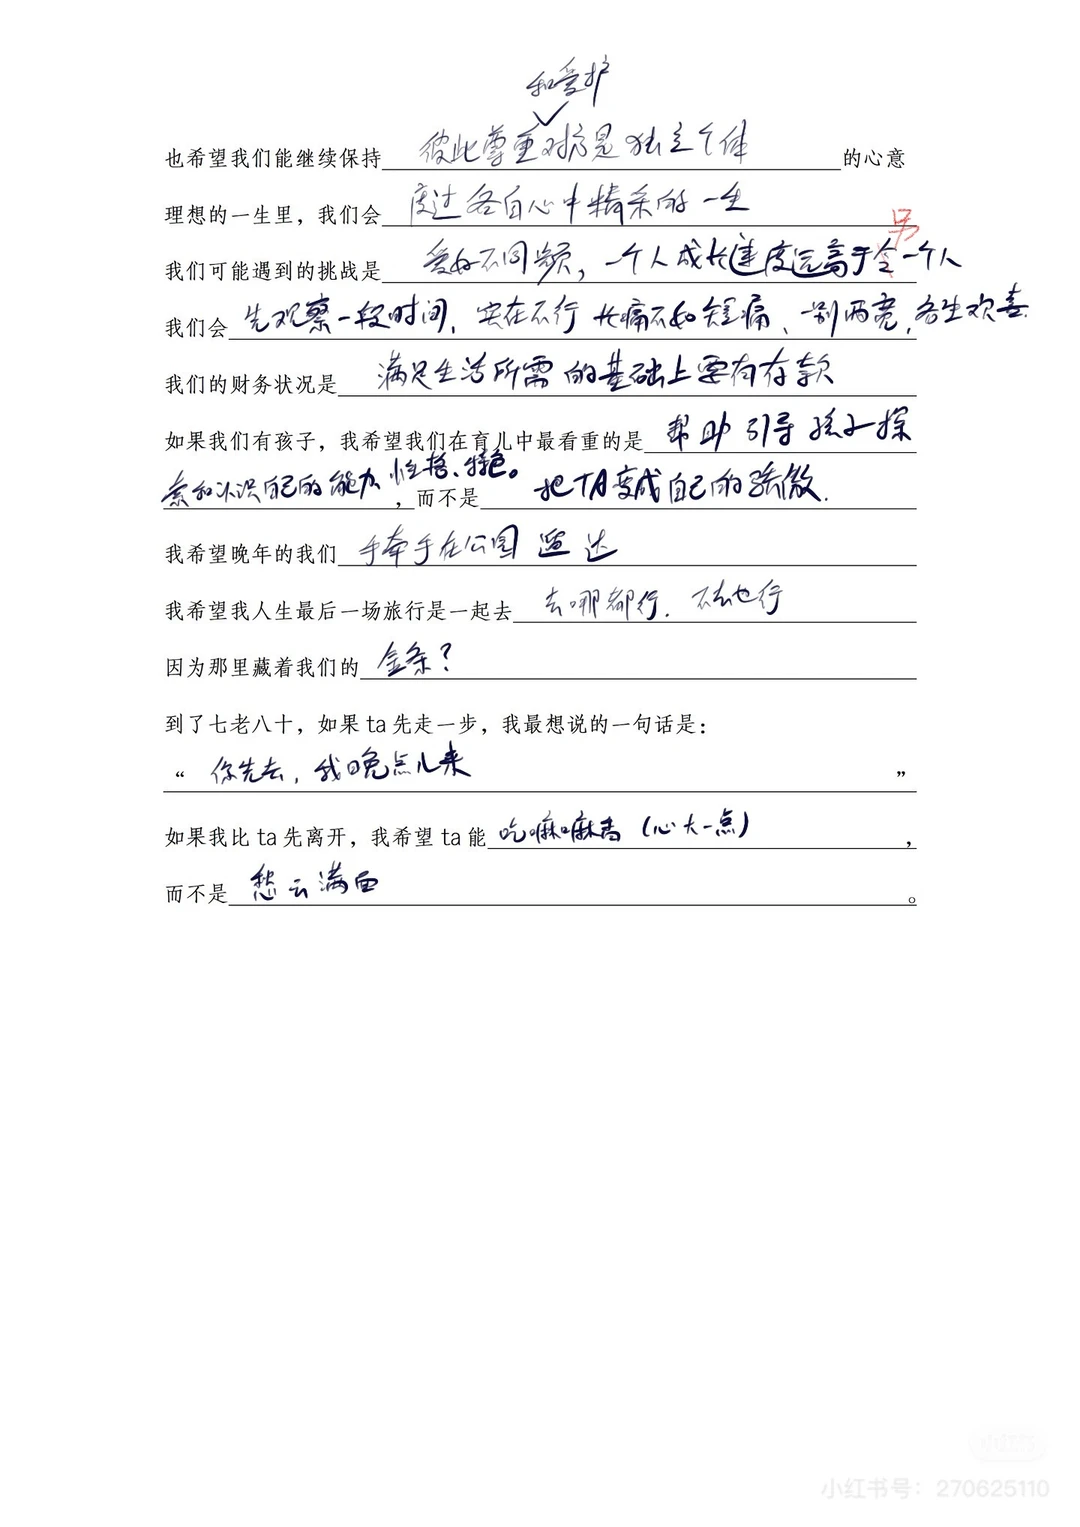 和爱护
也希望我们能继续保持 彼此尊重对方是独立个体 的心意
理想的一生里，我们会 度过各自心中精采的一生
另
我们可能遇到的挑战是 爱好不同频，一个人成长速度远高于全一个人
我们会 先观察一段时间，实在不行长痛不如短痛、一别两宽，各生欢喜.
我们的财务状况是 满足生活所需的基础上要有存款
如果我们有孩子，我希望我们在育儿中最看重的是 帮助引导孩子探
索和认识自己的能力 性格、特色。，而不是 把TA变成自己的骄傲.
我希望晚年的我们 手牵手在公园遛达
我希望我人生最后一场旅行是一起去 去哪都行. 不去也行
因为那里藏着我们的 金条？
到了七老八十，如果 ta 先走一步，我最想说的一句话是：
“ 你先去，我晚点儿来 ”
如果我比 ta 先离开，我希望 ta 能 吃嘛嘛香（心大一点），
而不是 愁云满面。
小红书
小红书号：270625110